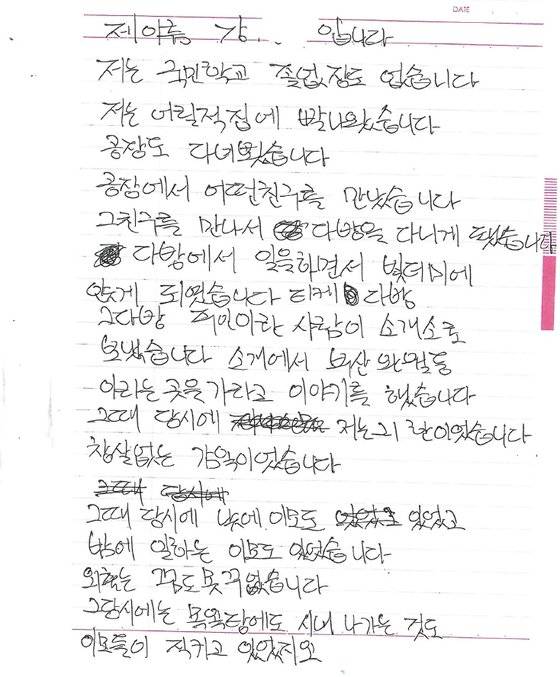 DATE
제 이름 강.. 입니다
저는 국민학교 졸업장도 없습니다
저는 어릴적집에 빨나왔습니다
공장도 다녀봤습니다
공장에서 어떤친구를 만났습니다
그친구를 만나서 다방을 다니게 됐습니다
다방에서 일을하면서 빚더미에
안게 되였습니다 티케 다방
그다방 주인이라 사람이 소개소로
보냈습니다 소개에서 부산 완월동
이라는곳을가라고 이야기를 했습니다
그때 당시에 저는그 란이었습니다
창살없는 감옥이었습니다
그때 당시에
그때 당시에 낮에이모도 있었고
밖에 일하는 이모도 있었습니다
외출는 꿈도못꾸었습니다
그당시에는 목욕탕에도 시내 나가는 것도
이모들이 직키고 있었지요